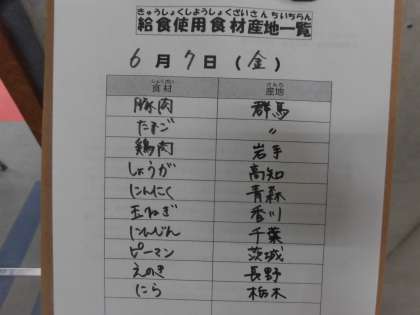 きゅうしょくしようしょくざいさんちいちらん
給食使用食材産地一覧
6月7日(金)
しょくざい さんち
食材 産地
豚肉 群馬
たまご 〃
鶏肉 岩手
しょうが 高知
にんにく 青森
玉ねぎ 香川
にんじん 千葉
ピーマン 茨城
えのき 長野
にら 栃木